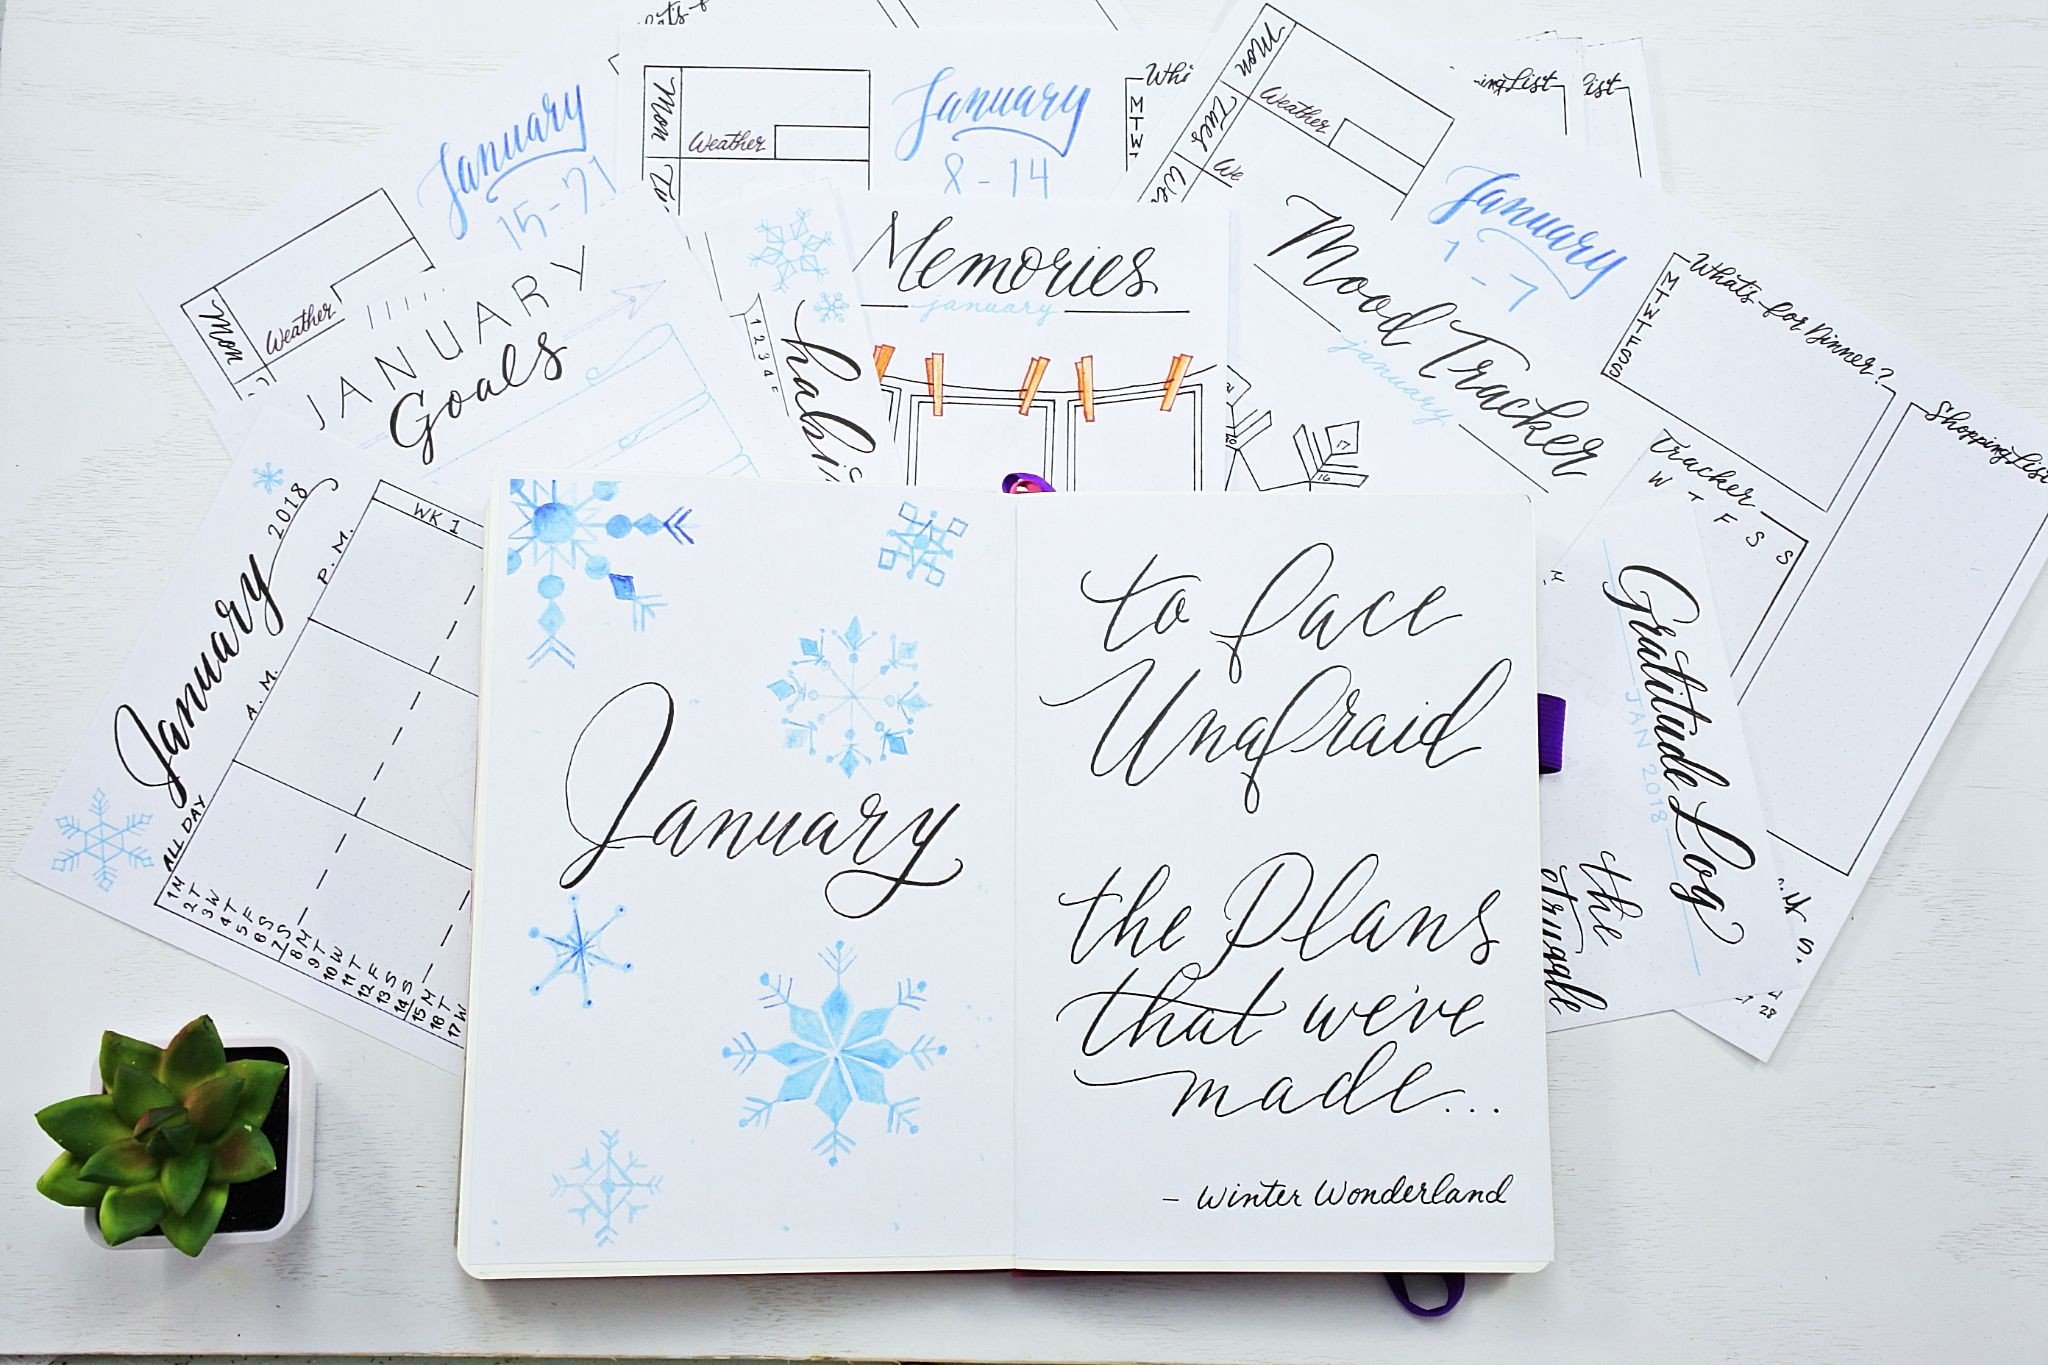 January
15-21
Mon
Weather
JANUARY
Goals
Mon
Weather
January
8-14
M
T
W
Mon
Tues
Weather
January
1-7
What's for Dinner?
M
T
W
T
F
S
S
Shopping List
Memories
january
1
2
3
4
Mood Tracker
january
16
17
Tracker
W T F S S
January 2018
WK 1
P.M.
A.M.
ALL DAY
1 M
2 T
3 W
4 T
5 F
6 S
7 S
8 M
9 T
10 W
11 T
12 F
13 S
14 S
15 M
16 T
17 W
Gratitude Log
JAN 2018
the
struggle
28
January
to face
Unafraid
the Plans
that we've
made...
- Winter Wonderland